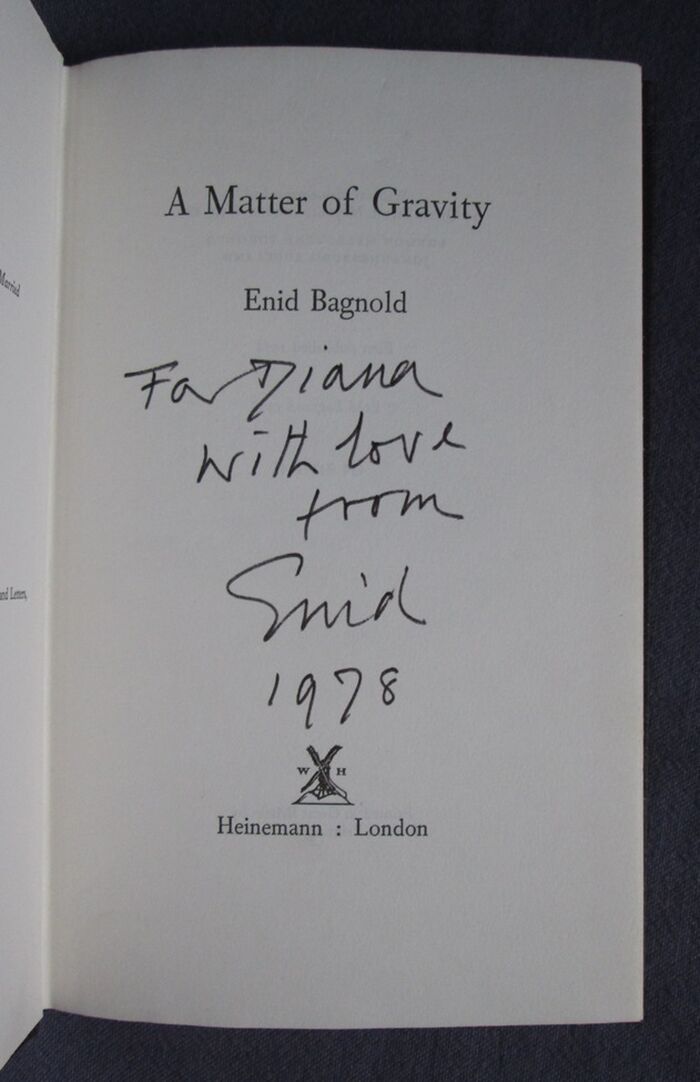 A Matter of Gravity
Enid Bagnold
For Diana
with love
from
Enid
1978
W H
Heinemann : London
Married
and Letters,